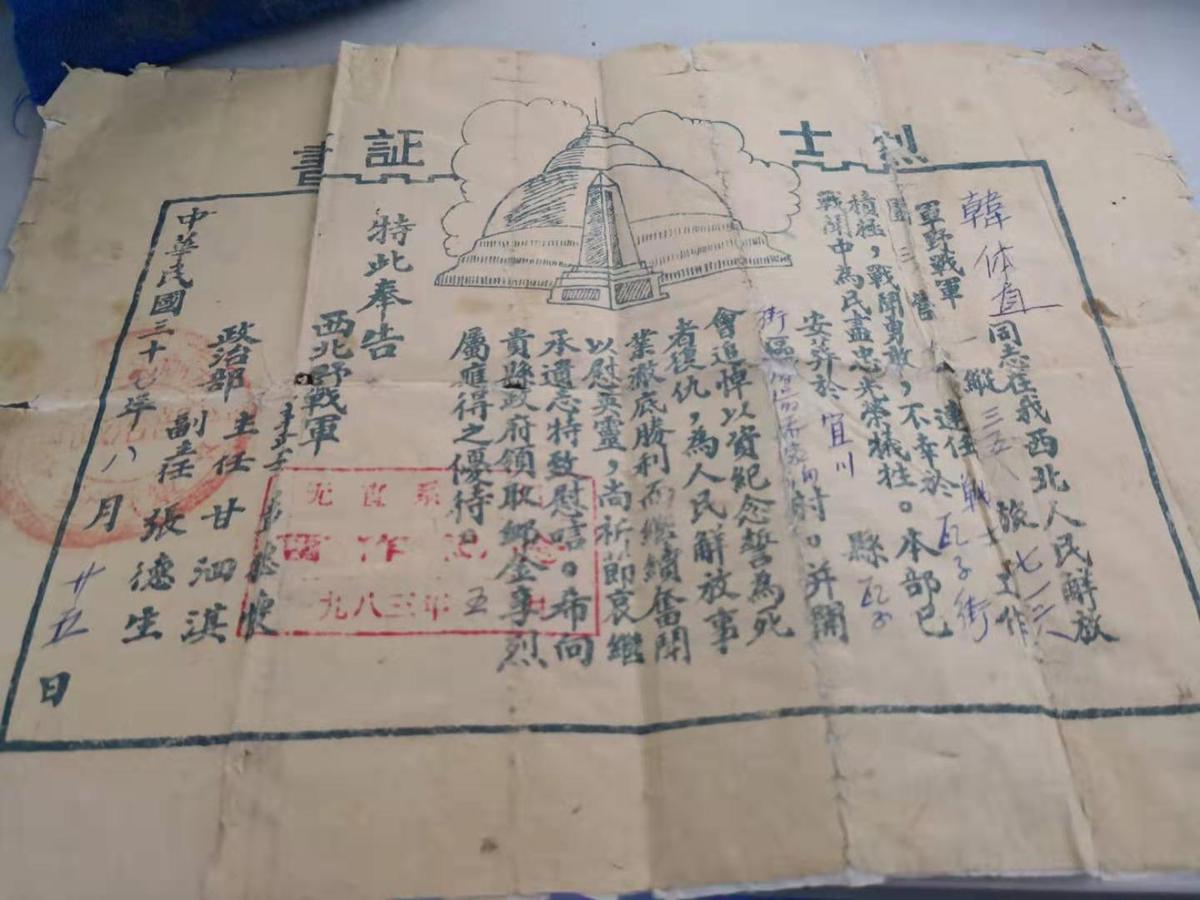 烈士 証書
韓休直同志在我西北人民解放
軍野戰軍一縱三五八旅七一六
團三營 連任 工作
積極，戰鬥勇敢，不幸於瓦子街
戰鬥中為民盡忠光榮犧牲。本部已
安葬於宜川縣瓦子
街區 村。并開
會追悼以資紀念誓為死
者復仇，為人民解放事
業澈底勝利而繼續奮鬥
以慰英靈，尚祈節哀繼
承遺志特致慰唁。希向
貴縣政府領取卹金享烈
屬應得之優待。
特此奉告
西北野戰軍
政治部主任甘泗淇
副主任張德生
中華民國三十七年八月廿五日
九八三年五